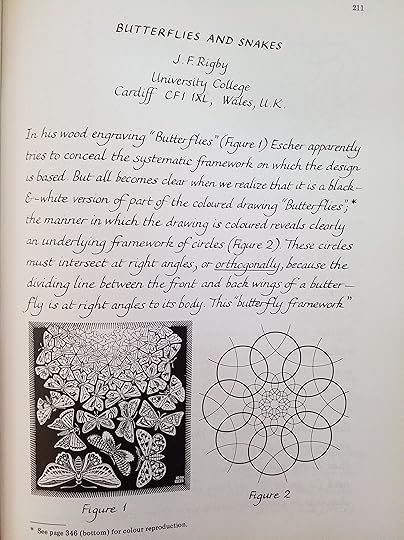 211
BUTTERFLIES AND SNAKES
J.F. Rigby
University College
Cardiff CF1 1XL, Wales, U.K.
In his wood engraving "Butterflies" (Figure 1) Escher apparently
tries to conceal the systematic framework on which the design
is based. But all becomes clear when we realize that it is a black-
&-white version of part of the coloured drawing "Butterflies";*
the manner in which the drawing is coloured reveals clearly
an underlying framework of circles (Figure 2). These circles
must intersect at right angles, or orthogonally, because the
dividing line between the front and back wings of a butter-
fly is at right angles to its body. This "butterfly framework"
Figure 1
Figure 2
* See page 346 (bottom) for colour reproduction.